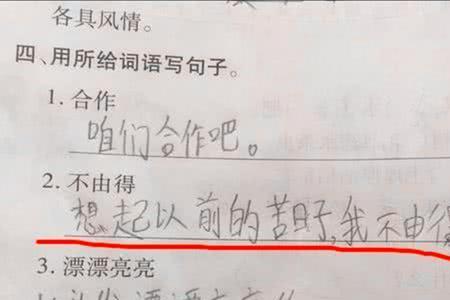 各具风情。
四、用所给词语写句子。
1. 合作
咱们合作吧。
2. 不由得
想起以前的苦日子,我不由得
3. 漂漂亮亮
漂漂亮亮